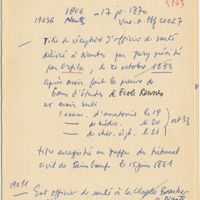 5143
1806 - 17 jr 1870
19036 Nantes
Titre de réception d'officier de santé
délivré à Nantes par jury présidé
par Orfila, le 21 octobre 1833
après avoir fait la preuve de
6 ans d'études à Ecole Rennes
et avoir subi
1 exam. d'anatomie le 19
- de médec. le 20
- de chir. le 21
oct 33
titre enregistré au greffe du tribunal
civil de Paimboeuf le 15 juin 1861
19011 Est officier de santé à la Chapelle